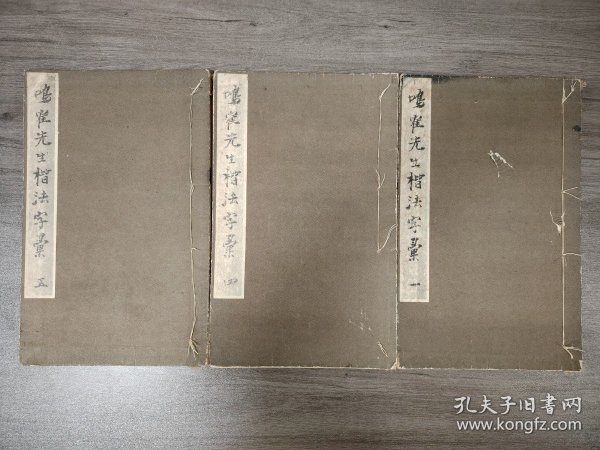 鳴崔先生楷法字彙 五
鳴崔先生楷法字彙 四
鳴崔先生楷法字彙 一
孔夫子旧书网
www.kongfz.com